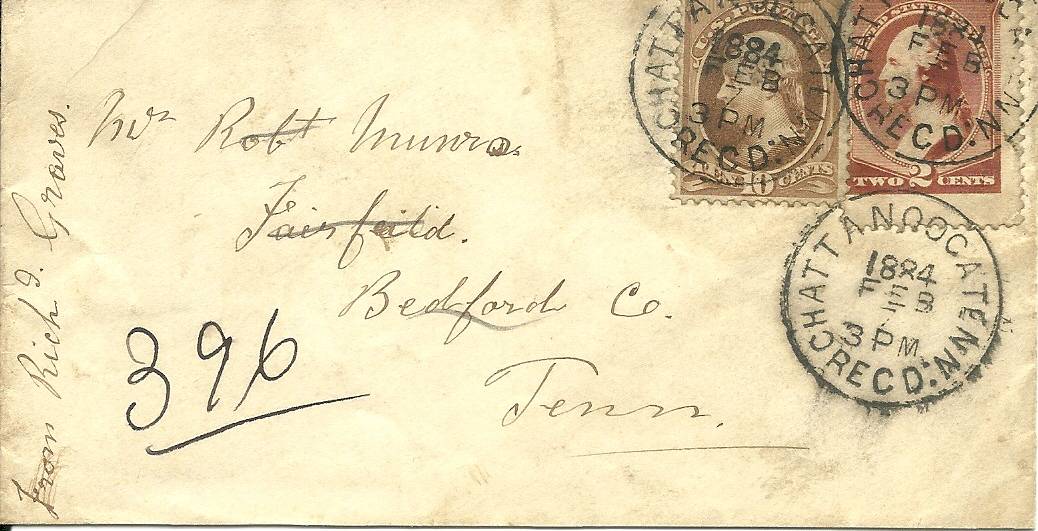 Mr Robt Munro.
Fairfeild.
Bedford Co.
Tenn.
396
From Rich J. Graves.
U.S. POSTAGE
10 CENTS
TWO 2 CENTS
CHATTANOOGA TENN.
1884
FEB
3 PM
REC'D.
CHATTANOOGA TENN.
1884
FEB
3 PM
REC'D.
CHATTANOOGA TENN.
1884
FEB
3 PM
REC'D.